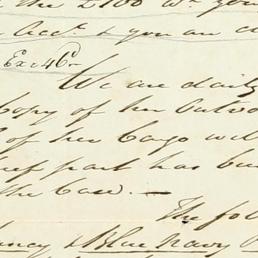 the £100 w
Acct. & you are a
Ex 46
We are daily
copy of her Outw
of her Cargo wil
part has be
the Case. —
The fol
& Blue Navy